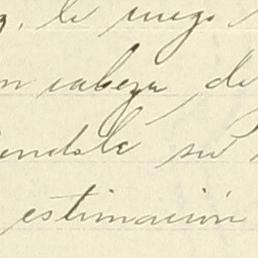 le ruego
n cabeza, de
endole su
estimación